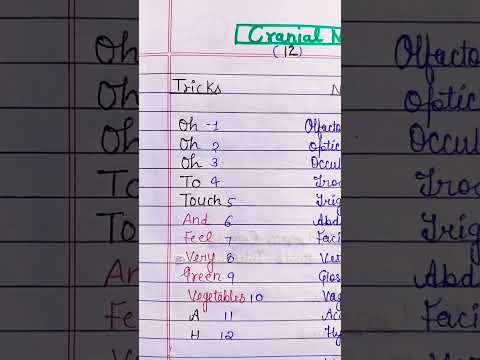 Cranial N
(12)
Tricks N
Oh - 1 Olfacto
Oh 2 optic
Oh 3 Occul
To 4 Troc
Touch 5 Trig
And 6 Abd
Feel 7 Faci
Very 8 Ver
Green 9 Glos
Vegetables 10 Vag
A 11 Acc
H 12 Hy